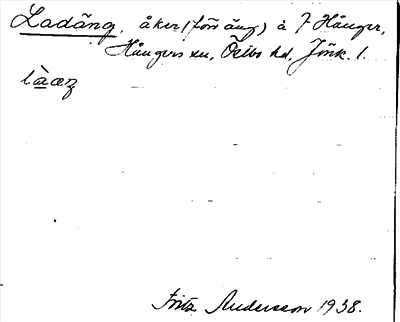 Ladäng, åker (förr äng) å 7 Hånger,
Hångers sn, Östbo hd, Jönk. l.
Fritz Andersson 1938.